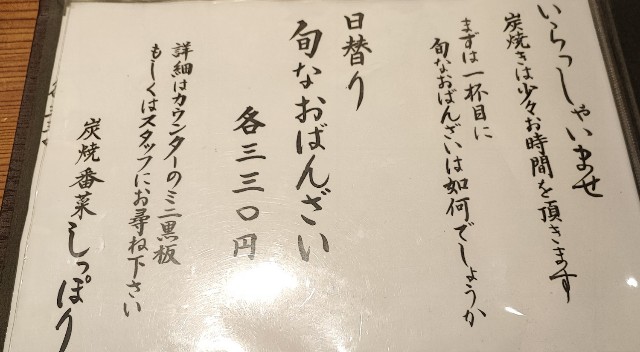 いらっしゃいませ
炭焼きは少々お時間を頂きます
まずは一杯目に
旬なおばんざいは如何でしょうか
日替り
旬なおばんざい
各三三〇円
詳細はカウンターのミニ黒板
もしくはスタッフにお尋ね下さい
炭焼番菜しっぽり